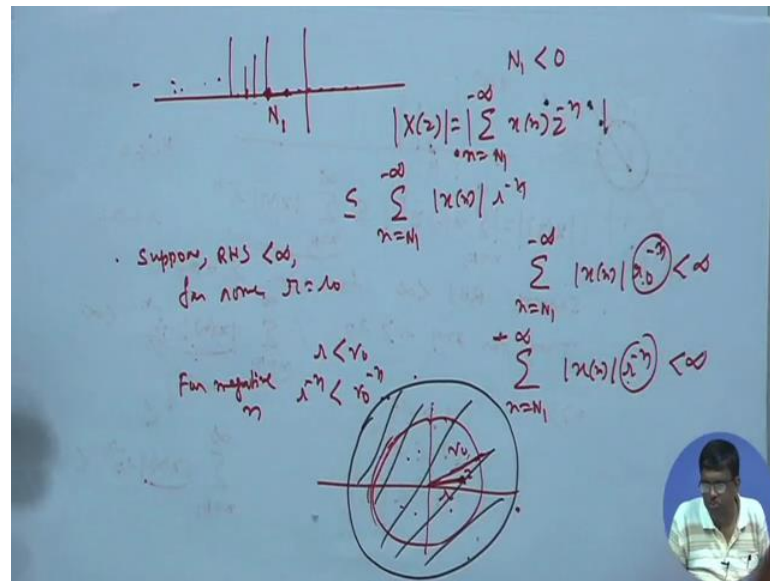 N₁ < 0
N₁
|X(z)| = |∑_{n=N₁}^{-∞} x(n) z^{-n}|
≤ ∑_{n=N₁}^{-∞} |x(n)| r^{-n}
Suppose, RHS < ∞,
for some r = r₀
∑_{n=N₁}^{-∞} |x(n)| r₀^{-n} < ∞
r < r₀
For negative n r^{-n} < r₀^{-n}
∑_{n=N₁}^{-∞} |x(n)| r^{-n} < ∞
r₀
r z